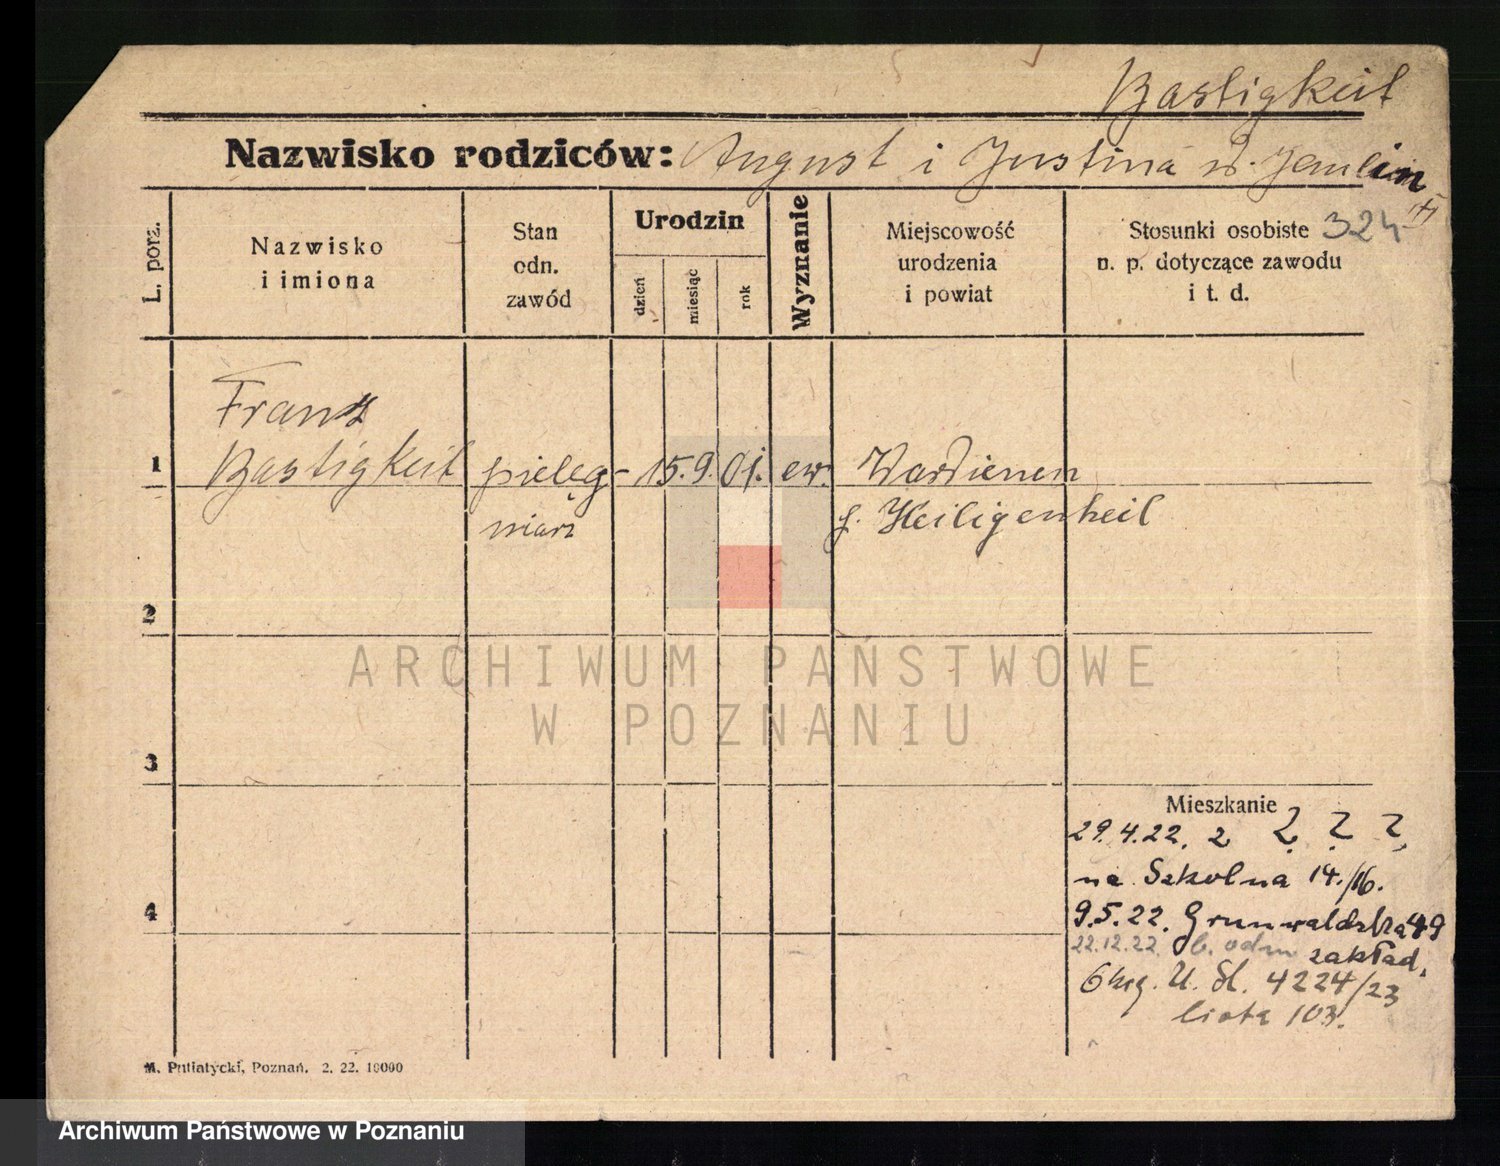 Bastigkeit
Nazwisko rodziców: August i Justina
324
L. porz.
Nazwisko
i imiona
Stan
odn.
zawód
Urodzin
dzień
miesiąc
rok
Wyznanie
Miejscowość
urodzenia
i powiat
Stosunki osobiste
n. p. dotyczące zawodu
i t. d.
Franz
1 Bastigkeit pielęg- 15. 9. 01. ew. Wardienen
niarz Heiligenbeil
2
3
Mieszkanie
29.4.22. z ? ? ?,
na Szkolna 14./16.
4
9.5.22. Grunwaldzka 49
22.12.22. zakład,
4224/23
lista 103.
M. Putiatycki, Poznań. 2. 22. 10000
ARCHIWUM PAŃSTWOWE
W POZNANIU
Archiwum Państwowe w Poznaniu